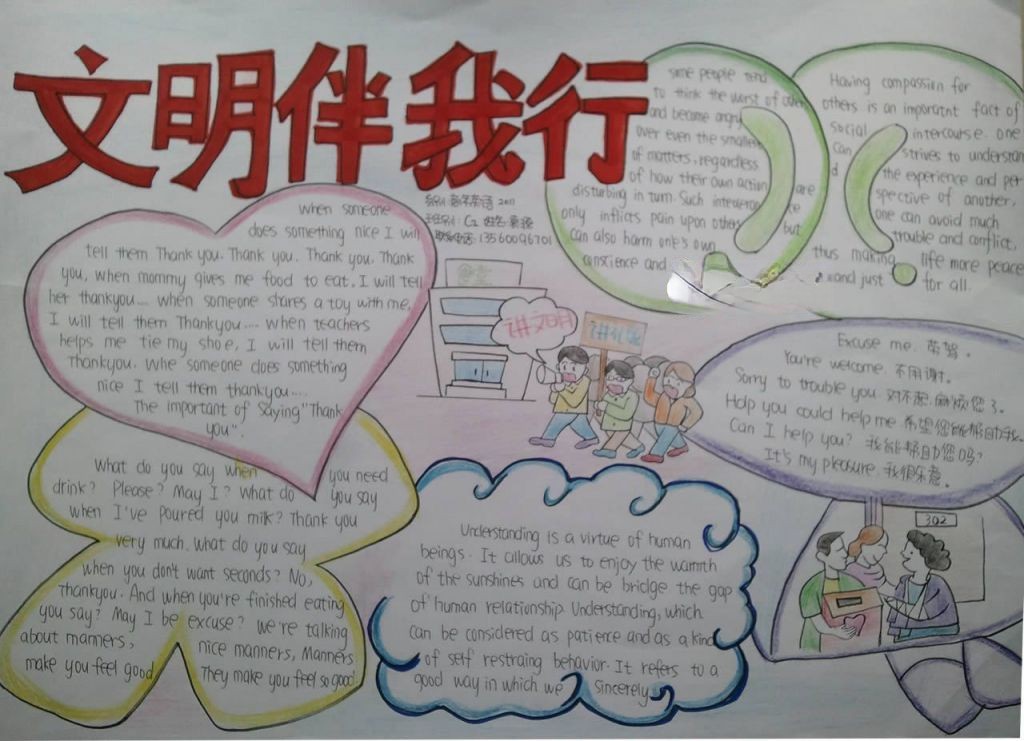 文明伴我行
系别:商务英语 2011
班别:C2 姓名:
联系电话:13560096701
when someone
does something nice I will
tell them Thank you. Thank you. Thank you. Thank
you, when mommy gives me food to eat. I will tell
her thankyou.... when someone shares a toy with me,
I will tell them Thankyou.... when teachers
helps me tie my shoe, I will tell them
Thankyou. Whe someone does something
nice I tell them thankyou....
The important of Saying "Thank
you".
some people tend
to think the worst of others
and become angry
over even the smallest
of matters, regardless
of how their own action are
disturbing in turn. Such intolerance
only inflicts pain upon others but
can also harm one's own
conscience and
Having compassion for
others is an imporatnt fact of
social intercourse. one
can strives to understan
d the experience and per
spective of another,
one can avoid much
trouble and conflict,
thus making life more peace
and just for all.
讲文明
讲礼貌
Excuse me. 劳驾。
You're welcome. 不用谢。
Sorry to trouble you. 对不起,麻烦您了。
Hdp you could help me 希望您能帮助我
Can I help you? 我能帮助您吗?
It's my pleasure. 我很乐意。
302
What do you say when you need
drink? Please? May I? What do you say
when I've poured you milk? Thank you
very much. What do you say
when you don't want seconds? No,
Thankyou. And when you're finished eating
you say? May I be excuse? We're talking
about manners, nice manners, Manners
make you feel good They make you feel so good
Understanding is a virtue of human
beings. It allows us to enjoy the warmth
of the sunshines and can be bridge the gap
of human relationship. Understanding, which
can be considered as patience and as a kind
of self restraing behavior. It refers to a
good way in which we sincerely